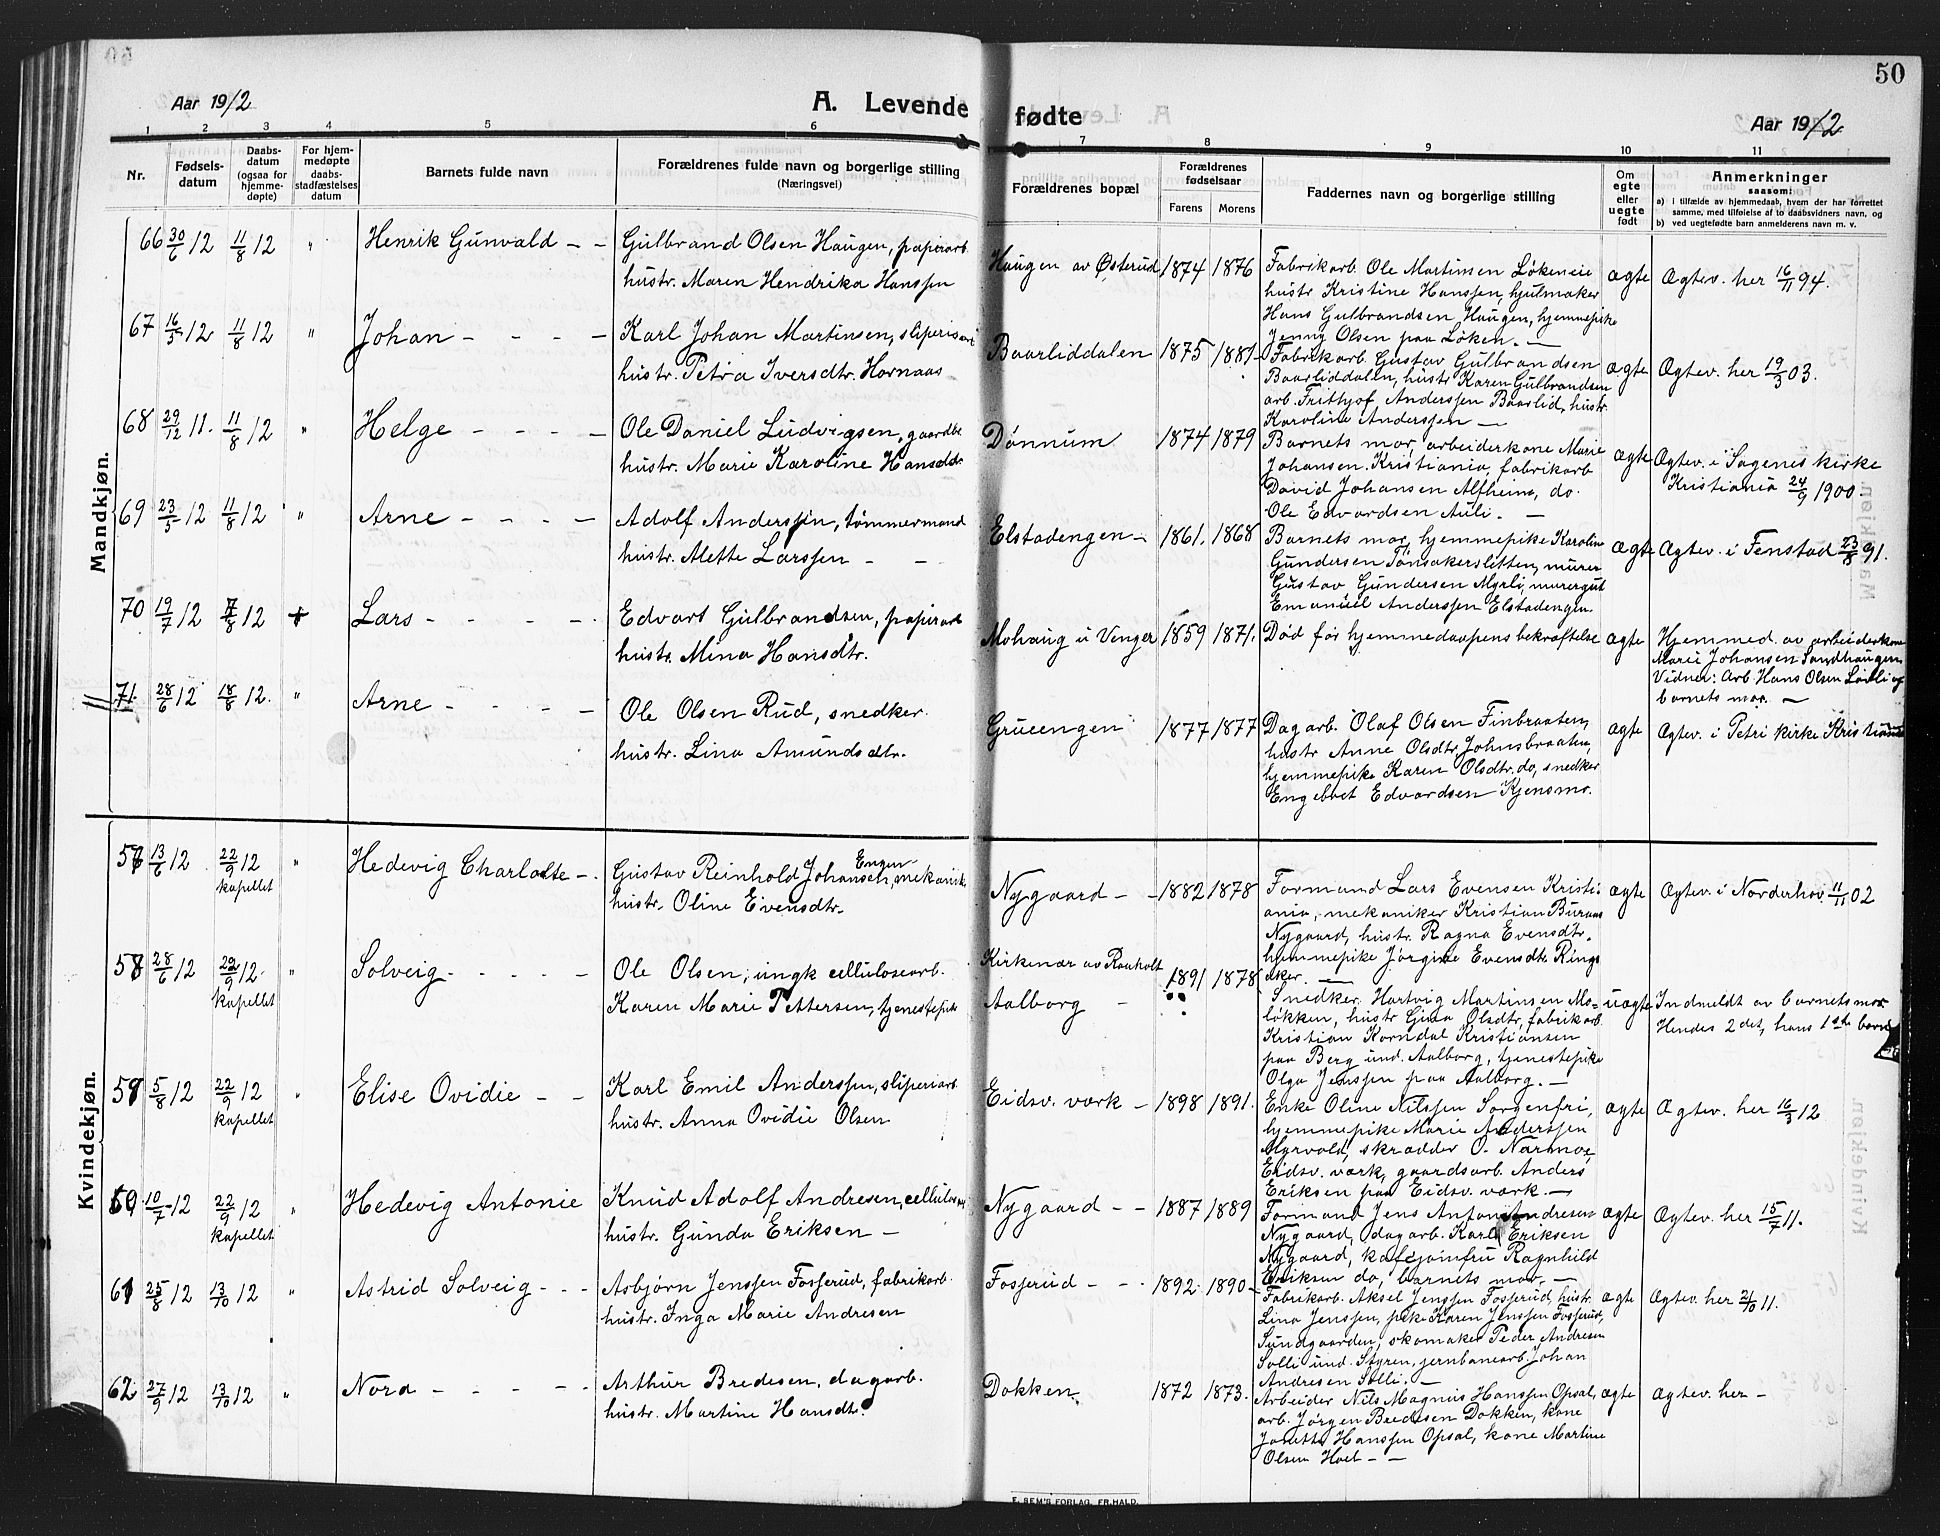 50
Aar 1912
A. Levende fødte
Aar 1912
1 2 3 4 5 6 7 8 9 10 11
Nr.
Fødsels-
datum
Daabs-
datum
(ogsaa for
hjemme-
døpte)
For hjem-
medøpte
daabs-
stadfæstelses
datum
Barnets fulde navn
Forældrenes fulde navn og borgerlige stilling
(Næringsvei)
Forældrenes bopæl
Forældrenes
fødselsaar
Farens Morens
Faddernes navn og borgerlige stilling
Om
egte
eller
uegte
født
Anmerkninger
saasom:
a) i tilfælde av hjemmedaab, hvem der har forrettet
samme, med tilføielse af to daabsvidners navn, og
b) ved uegtefødte barn anmelderens navn m. v.
Mandkjøn.
66 30/6 12 11/8 12 " Henrik Gunvald - -
Gulbrand Olsen Haugen, papirarb.
hustr. Maren Hendrika Hanssen
Haugen av Østerud 1874 1876
Fabrikarb. Ole Martinsen Løkeneie
hustr Kristine Hanssen, hjulmaker
Hans Gulbrandsen Haugen, hjemmepike
Jenny Olsen paa Løken. -
ægte Ægtev. her 16/11 94.
67 16/5 12 11/8 12 " Johan - - - -
Karl Johan Martinsen, sliperiarb
hustr. Petra Iversdtr. Hornaas
Baarliddalen 1875 1881
Fabrikarb. Gustav Gulbrandsen
Baarliddalen, hustr Karen Gulbrandsen
arb. Frithjof Anderssen Baarlid, hustr.
Karoline Anderssen -
ægte Ægtev. her 19/3 03.
68 29/12 11. 11/8 12 " Helge - - - -
Ole Daniel Ludvigsen, gaardbr.
hustr. Marie Karoline Hansdtr.
Dønnum 1874 1879
Barnets mor, arbeiderkone Marie
Johansen Kristiania, fabrikarb
David Johansen Alfheim, do.
Ole Edvardsen Auli. -
ægte Ægtev. i Sagenes kirke
Kristiania 24/9 1900.
69 23/5 12 11/8 12 " Arne - - - -
Adolf Anderssen, tømmermand
hustr. Alette Larssen - -
Elstadengen - 1861. 1868
Barnets mor, hjemmepike Karoline
Gundersen Tønsakersletten, murer
Gustav Gundersen Myrli, murergut
Emanuel Anderssen Elstadengen.
ægte Ægtev. i Fenstad 23/8 91.
70 19/7 12 7/8 12 + Lars - - - -
Edvart Gulbrandsen, papirarb
hustr. Mina Hansdtr.
Mohaug u Venger 1859 1871.
Død før hjemmedaapens bekræftelse
ægte Hjemmed. av arbeiderkone
Marie Johansen Sandhaugen
Vidner: Arb. Hans Olsen og
barnets mor. -
71. 28/6 12 18/8 12. " Arne - - - -
Ole Olsen Rud, snedker.
hustr. Lina Amundsdtr.
Grueengen 1877 1877
Dagarb. Olaf Olsen Finbraaten,
hustr Anne Olsdtr. Johnsbraaten,
hjemmepike Karen Olsdtr. do, snedker
Engebret Edvardsen Kjensmo.
ægte Ægtev. i Petri kirke Kristiania
Kvindekjøn.
57 13/6 12 22/9 12 " Hedevig Charlotte -
kapellet
Engen
Gustav Reinhold Johansen, mekanik.
hustr. Oline Evensdtr.
Nygaard - - 1882 1878
Formand Lars Evensen Kristi-
ania, mekaniker Kristian Buraas
Nygaard, hustr. Ragna Evensdtr.
hjemmepike Jørgine Evensdtr. Rings-
aker. -
ægte Ægtev. i Norderhov 11/11 02
58 28/6 12 22/9 12 " Solveig - - - -
kapellet
Ole Olsen, ungk. cellulosearb.
Karen Marie Pettersen, tjenestepike
Kirkenær av Raaholt
Aalborg - 1891 1878
Snedker Hartvig Martinsen Mo-
løkken, hustr Gina Olsdtr, fabrikarb
Kristian Korndal Kristiansen
paa Berg und. Aalborg, tjenestepike
Olga Jenssen paa Aalborg. -
uægte Indmeldt av barnets mor
Hendes 2det, hans 1ste barn
59 5/8 12 22/9 12 " Elise Ovidie - -
kapellet
Karl Emil Anderssen, sliperiarb.
hustr. Anna Ovidie Olsen
Eidsv. værk - 1898 1891.
Enke Oline Nilssen Sorgenfri,
hjemmepike Marie Anderssen
Myrvold, skrædder O. Narmo,
Eidsv. værk, gaardsarb. Anders
Eriksen paa Eidsv. værk. -
ægte Ægtev. her 16/3 12
60 10/7 12 22/9 12 " Hedevig Antonie
kapellet
Knud Adolf Andresen, cellulosearb
hustr. Gunda Eriksen -
Nygaard - - 1887 1889
Formand Jens Anton Andresen
Nygaard, dagarb. Karl Eriksen
Nygaard, kafejomfru Ragnhild
Eriksen do, barnets mor. -
ægte Ægtev. her 15/7 11.
61 25/8 12 13/10 12 " Astrid Solveig - - -
Asbjørn Jenssen Fosserud, fabrikarb.
hustr. Inga Marie Andresen
Fosserud - - 1892 1890
Fabrikarb. Aksel Jenssen Fosserud, hustr.
Lina Jenssen, pike Karen Jenssen Fosserud,
Sundgaarden, skomaker Peder Andresen
Solli und. Styren, jernbanearb. Johan
Andresen Solli. -
ægte Ægtev. her 21/10 11.
62 27/9 12 13/10 12 " Nora - - - -
Arthur Bredesen, dagarb.
hustr. Martine Hansdtr.
Dokken 1872 1873.
Arbeider Nils Magnus Hanssen Opsal,
arb. Jørgen Bredesen Dokken, kone
Hanssen Opsal, kone Martine
Olsen Hoel - -
ægte Ægtev. her -
E. SEM'S FORLAG, FR.HALD.